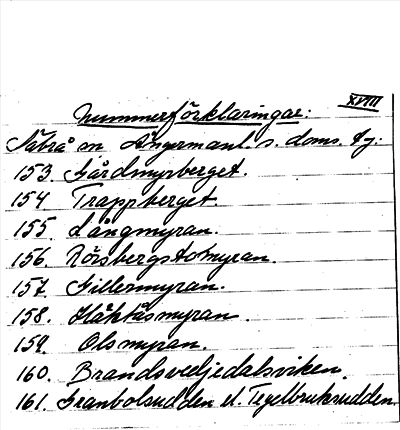 XVIII
Nummerförklaringar:
Näbrå sn Ångermanl. s. doms. tg.
153. Gårdmyrberget.
154 Trappberget.
155. Långmyran.
156. Rörsbergstomyran.
157. Gillermyran.
158. Slåktåsmyran.
159. Olsmyran.
160. Brandsvedjedalsviken.
161. Granbolsudden el. Tegelbruksudden.